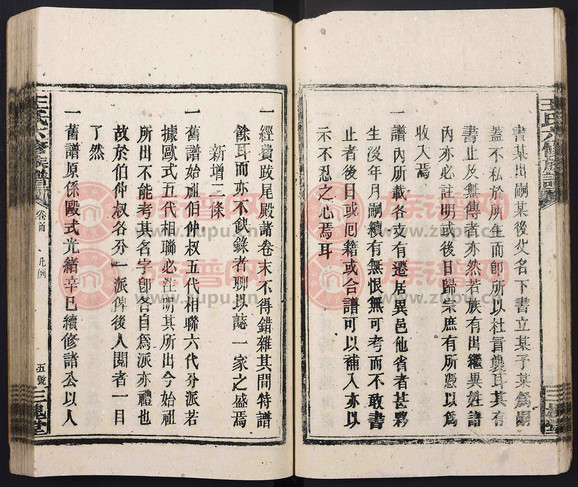 書某出嗣某後父名下書立某子某爲嗣
蓋不私於所生而卽所以杜冒
耳其有
書止及無傳者亦然若族有出繼異姓諸
內亦必註明或後日歸宗庶有所憑以爲
收入焉
一譜內所載各支有遷居異邑他省者甚夥
生沒年月嗣續有無恨無可考而不敢書
止者後日或回籍或合譜可以補入亦以
示不忍之心焉耳
一經費跋尾殿諸卷末不得錯雜其間特譜
餘耳而亦不飲錄者聊以誌一家之盛焉
新增二條
一舊譜始祖伯仲叔五代相聯六代分派若
據歐式五代相聯必注明其所出今始祖
所出不能考其名字卽各自爲派亦禮也
故於伯仲叔各分一派俾後人閱者一目
了然
一舊譜原係歐式光緒辛巳續修諸公以人
王氏六修族譜
卷首
凡例
五號
三槐堂
王氏六修族譜
三槐堂
族譜网
www.zupu.cn
族譜网
www.zupu.cn